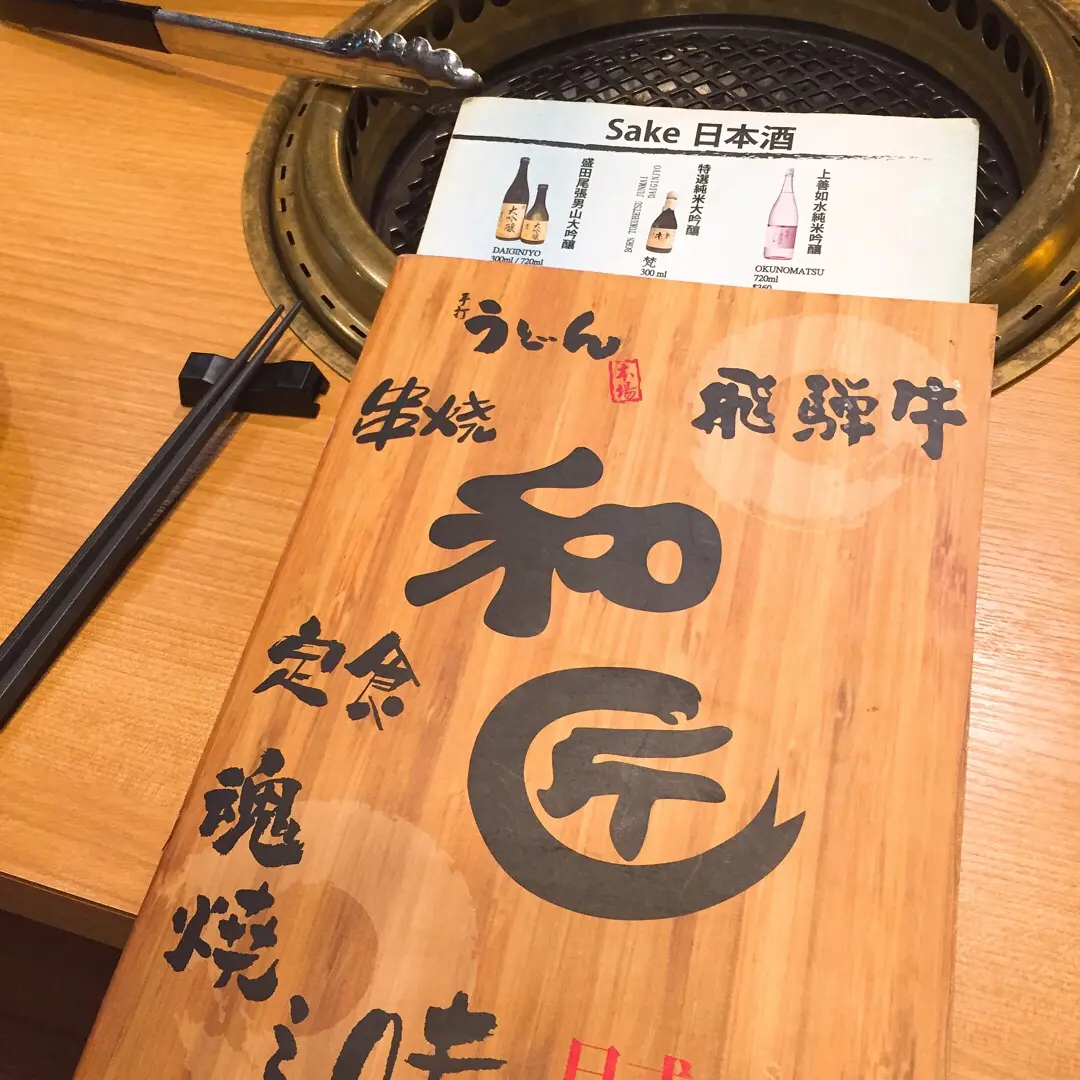 Sake 日本酒
盛田尾張男山大吟醸
大吟醸
DAIGINJYO
300ml / 720ml
特選純米大吟醸
BORN TOKUBETSU JUNMAI DAIGINJYO
梵
300 ml
上善如水純米吟醸
OKUNOMATSU
720ml
$360
手打
うどん
本場
串焼
飛騨牛
和
匠
定食
魂
燒
味
日式